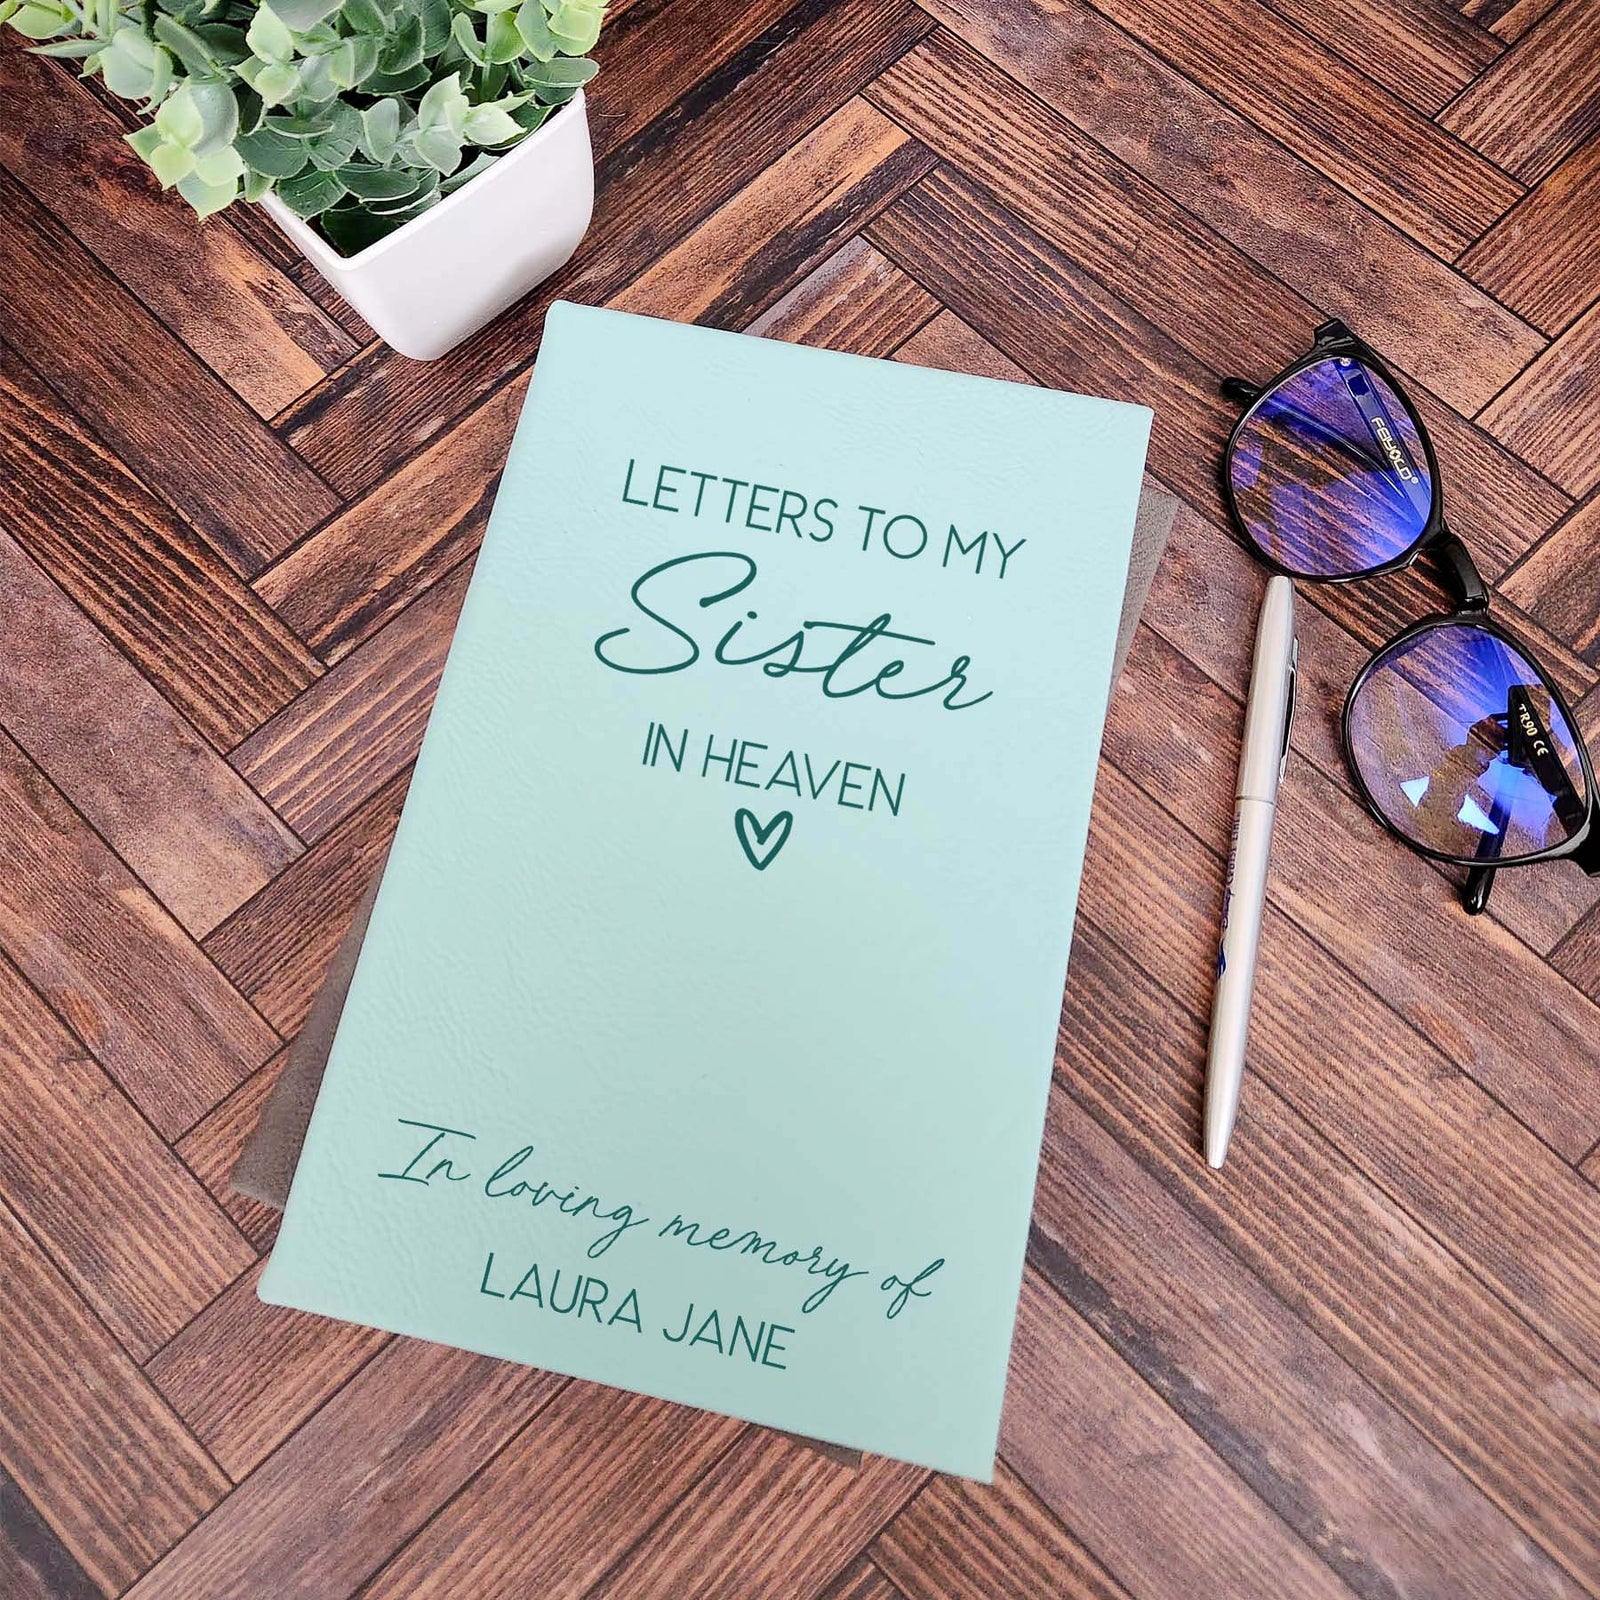 LETTERS TO MY
Sister
IN HEAVEN
In loving memory of
LAURA JANE
FEYOLD®
TR90 CE